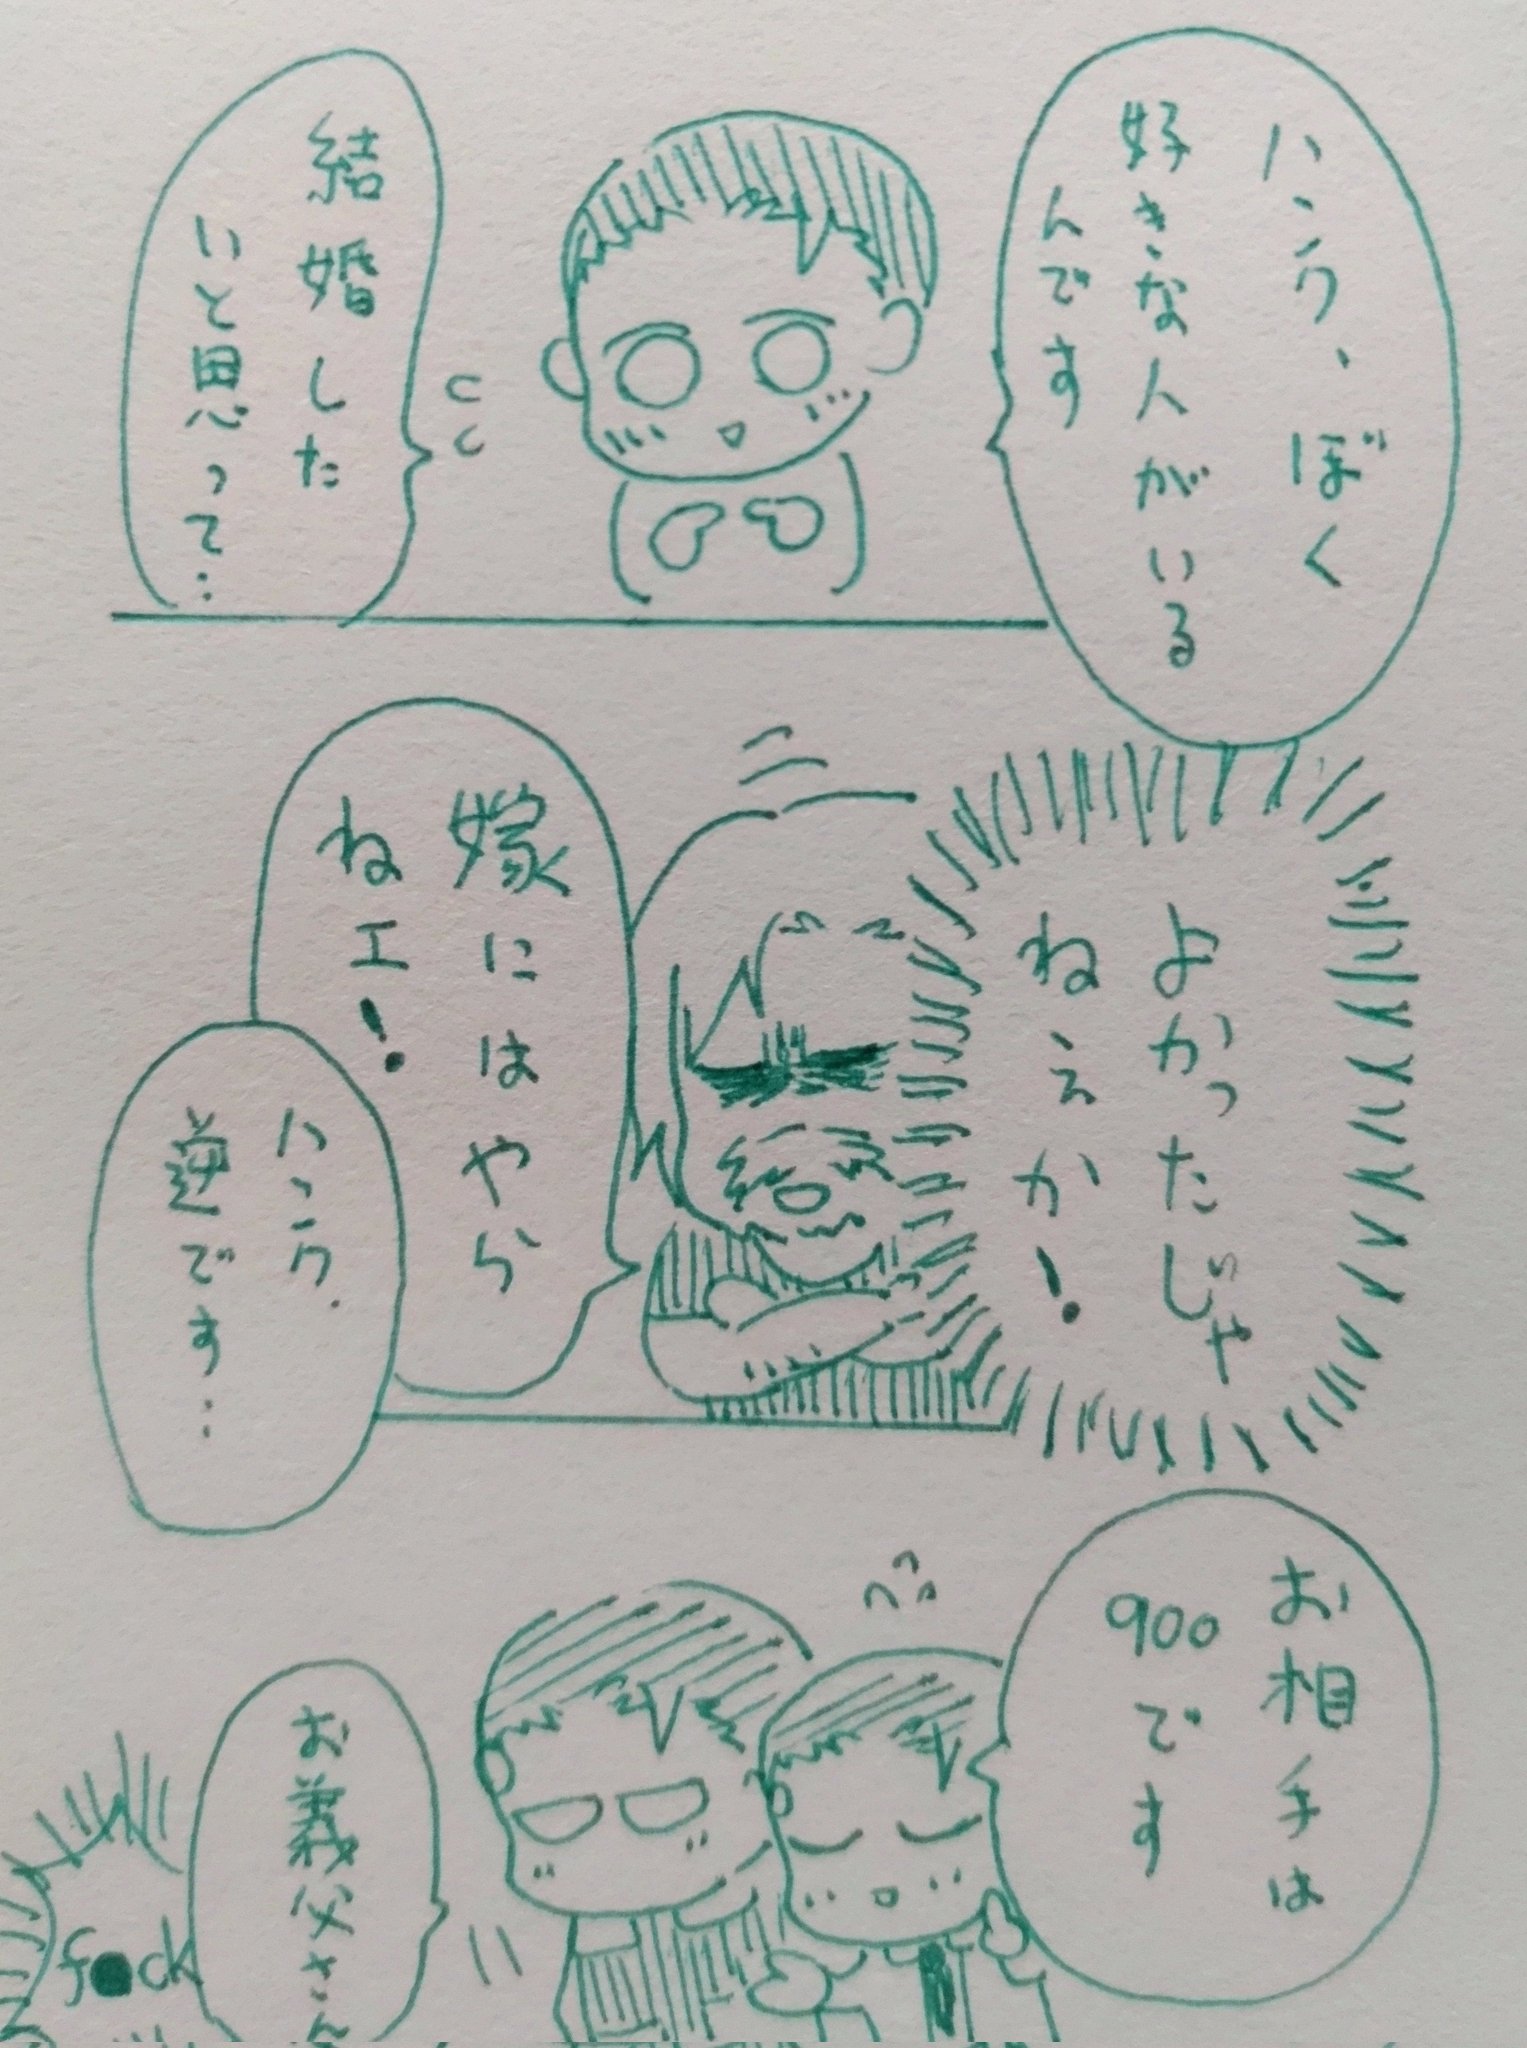 ハンク、ぼく
好きな人がいる
んです
結婚した
いと思って…
よかったじゃ
ねぇか!
嫁にはやら
ねエ!
ハンク.
逆です…
お相手は
900です
お義父さん
f●ck